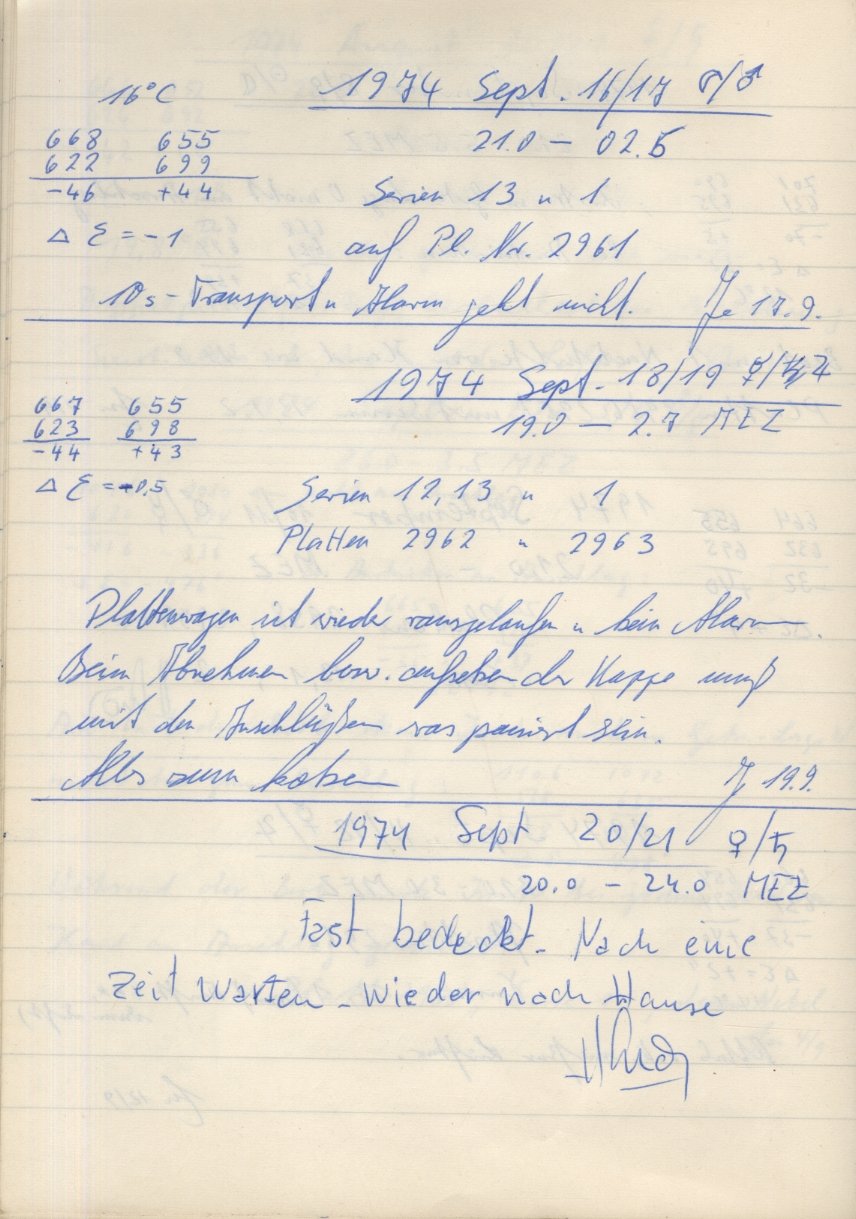 16°C 1974 Sept. 16/17 ♂/♂
668 655 21.0 – 02.5
622 699
-46 +44 Serien 13 u 1
Δ Σ = -1 auf Pl. Nr. 2961
10s-Transport u Alarm geht nicht. Je 17.9.
1974 Sept. 18/19
667 655 19.0 – 2.7 MEZ
623 698
-44 +43
Δ Σ = -0,5 Serien 12,13 u 1
Platten 2962 u 2963
Plattenwagen ist wieder rausgelaufen u kein Alarm.
Beim Abnehmen bzw. aufsetzen der Kappe muß
mit den Anschlüßen was passiert sein.
Alles zum kotzen J 19.9.
1974 Sept 20/21 ♀/♄
20.0 – 24.0 MEZ
Fast bedeckt. Nach eine
Zeit warten – wieder nach Hause